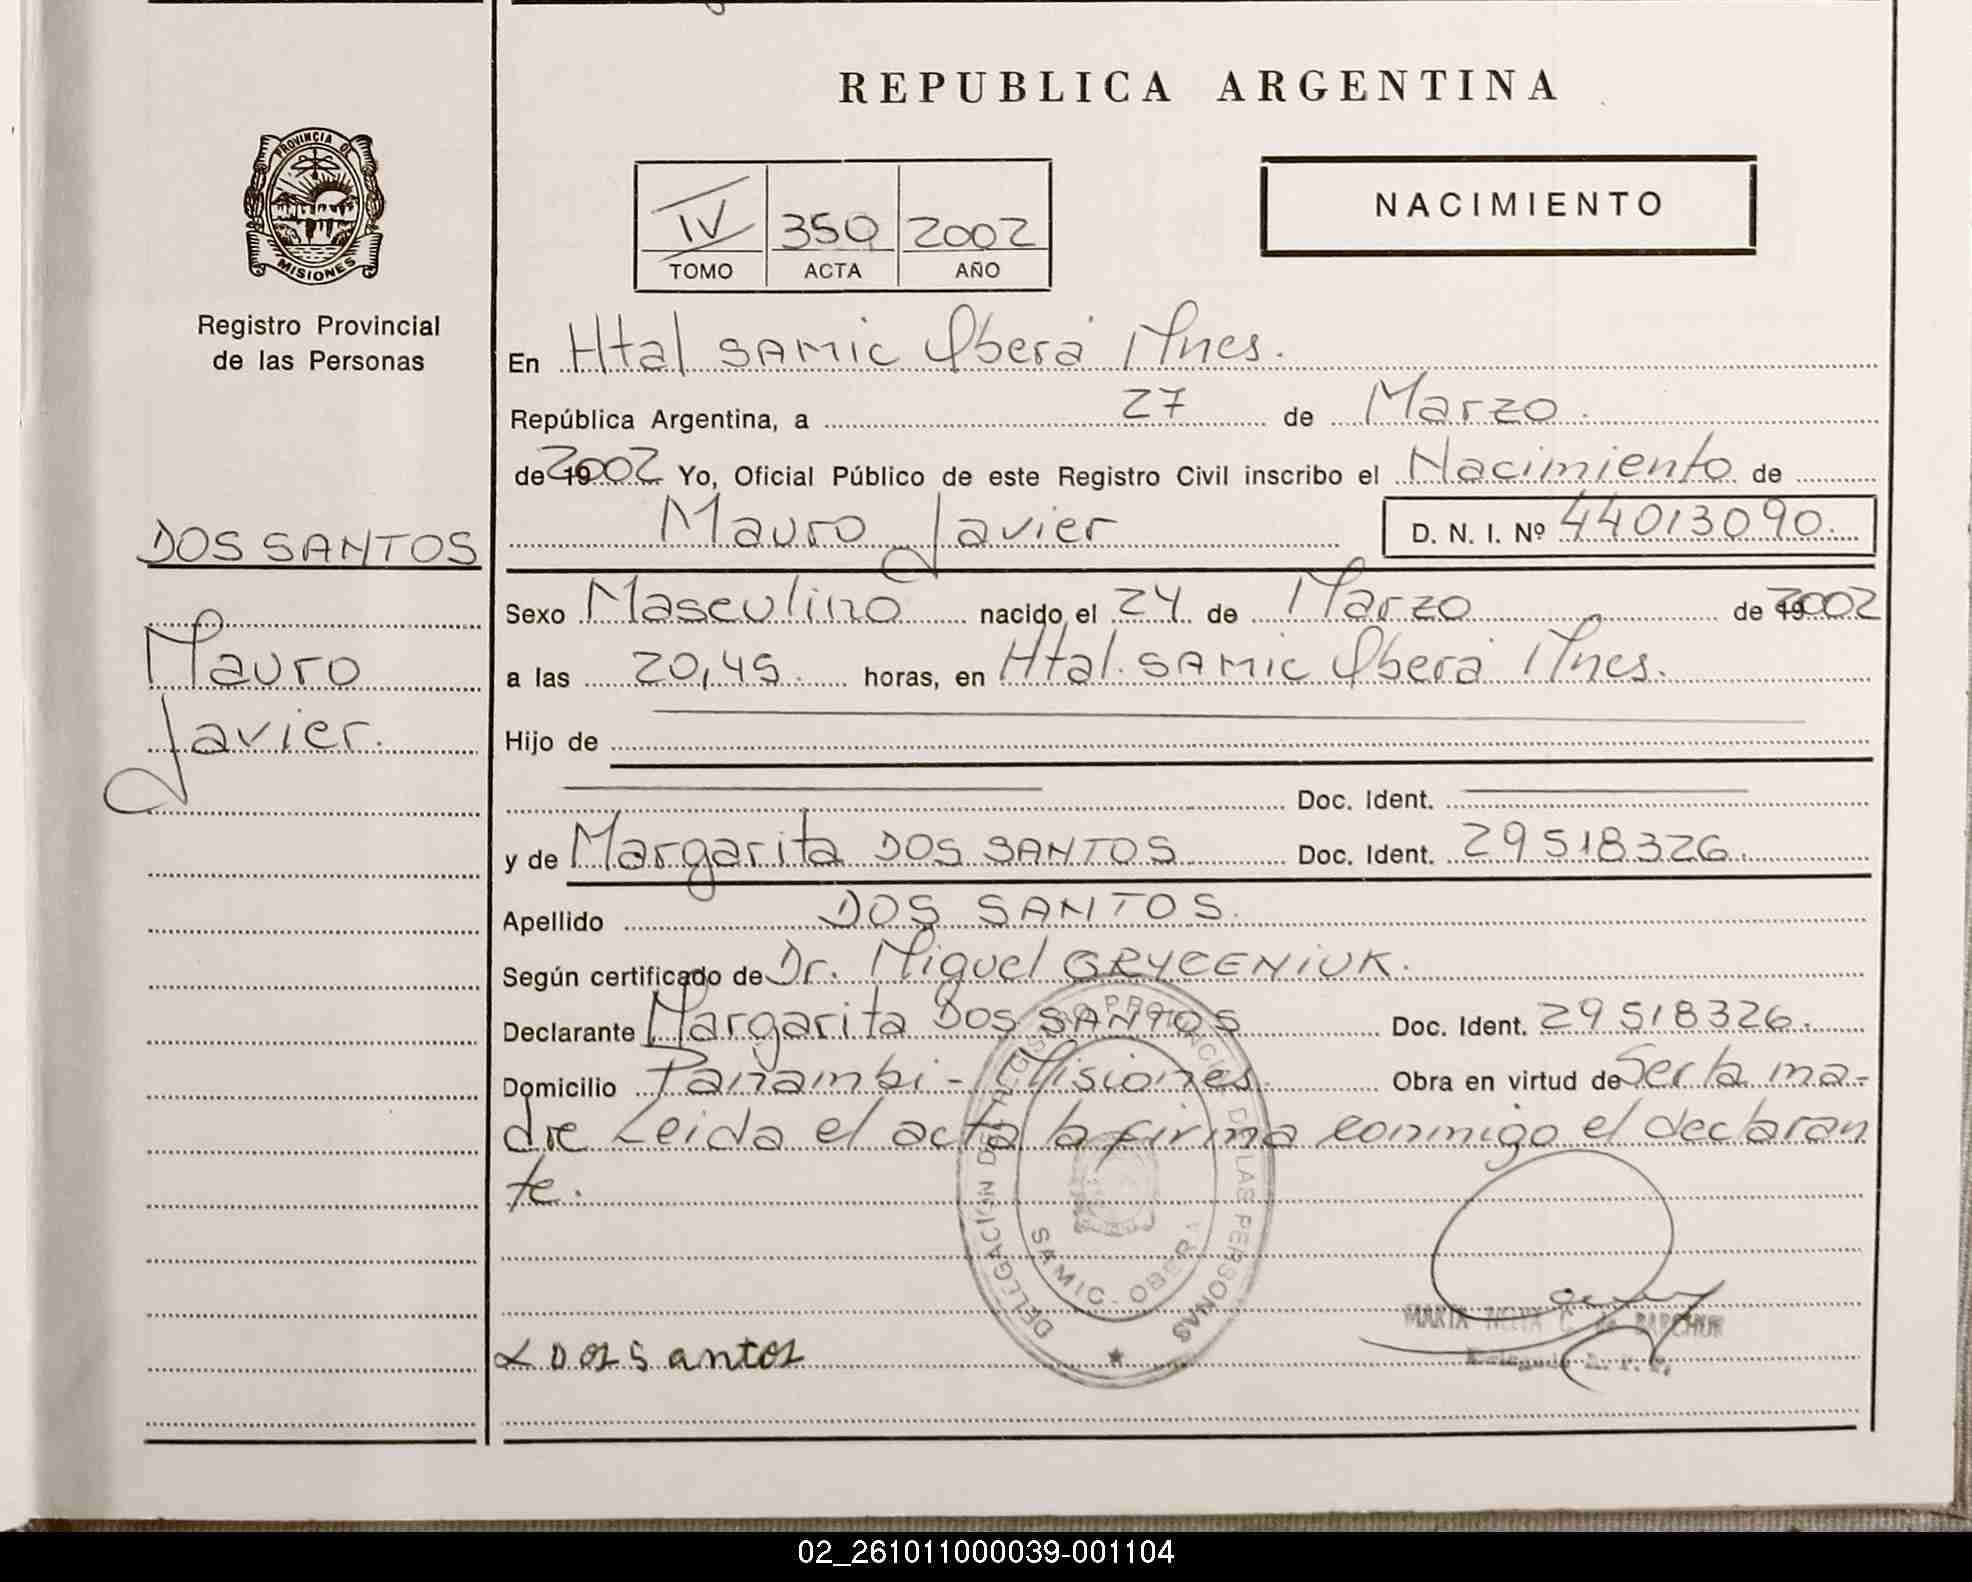 REPUBLICA ARGENTINA
PROVINCIA DE
MISIONES
Registro Provincial
de las Personas
IV 350 2002
TOMO ACTA AÑO
NACIMIENTO
DOS SANTOS
Mauro
Javier.
En Htal SAMIC Oberá Mnes.
República Argentina, a 27 de Marzo.
de 2002 Yo, Oficial Público de este Registro Civil inscribo el Nacimiento de
Mauro Javier D. N. I. Nº 44013090.
Sexo Masculino nacido el 24 de Marzo de 2002
a las 20,45. horas, en Htal. SAMIC Oberá Mnes.
Hijo de
Doc. Ident.
y de Margarita DOS SANTOS Doc. Ident. 29518326.
Apellido DOS SANTOS.
Según certificado de Dr. Miguel GRYCENIUK.
Declarante Margarita DOS SANTOS Doc. Ident. 29518326.
Domicilio Panambi - Misiones. Obra en virtud de Ser la ma-
dre Leida el acta la firma conmigo el declaran
te.
DELEGACION DEL REGISTRO PROVINCIAL DE LAS PERSONAS
SAMIC - OBERA
MARTA C. de BARCHUK
Dos Santos
02_261011000039-001104